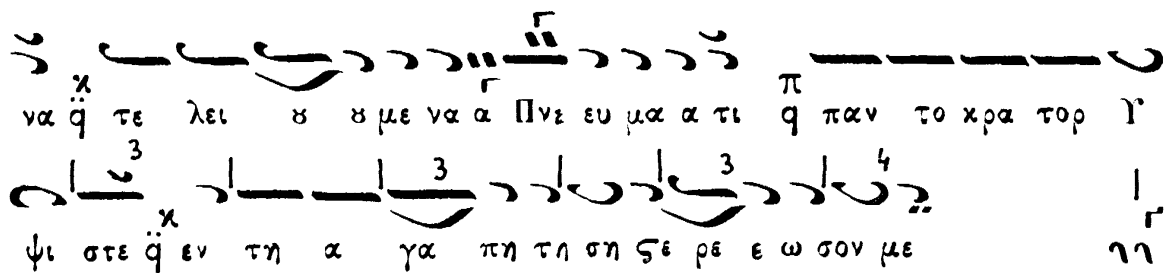 να q̈ τε λει ȣ ȣ με να α Πνε ευ μα α τι q παν το κρα τορ Υ
ψι στε q̈ εν τη α γα πη τη ση ϛε ρε ε ω σον με